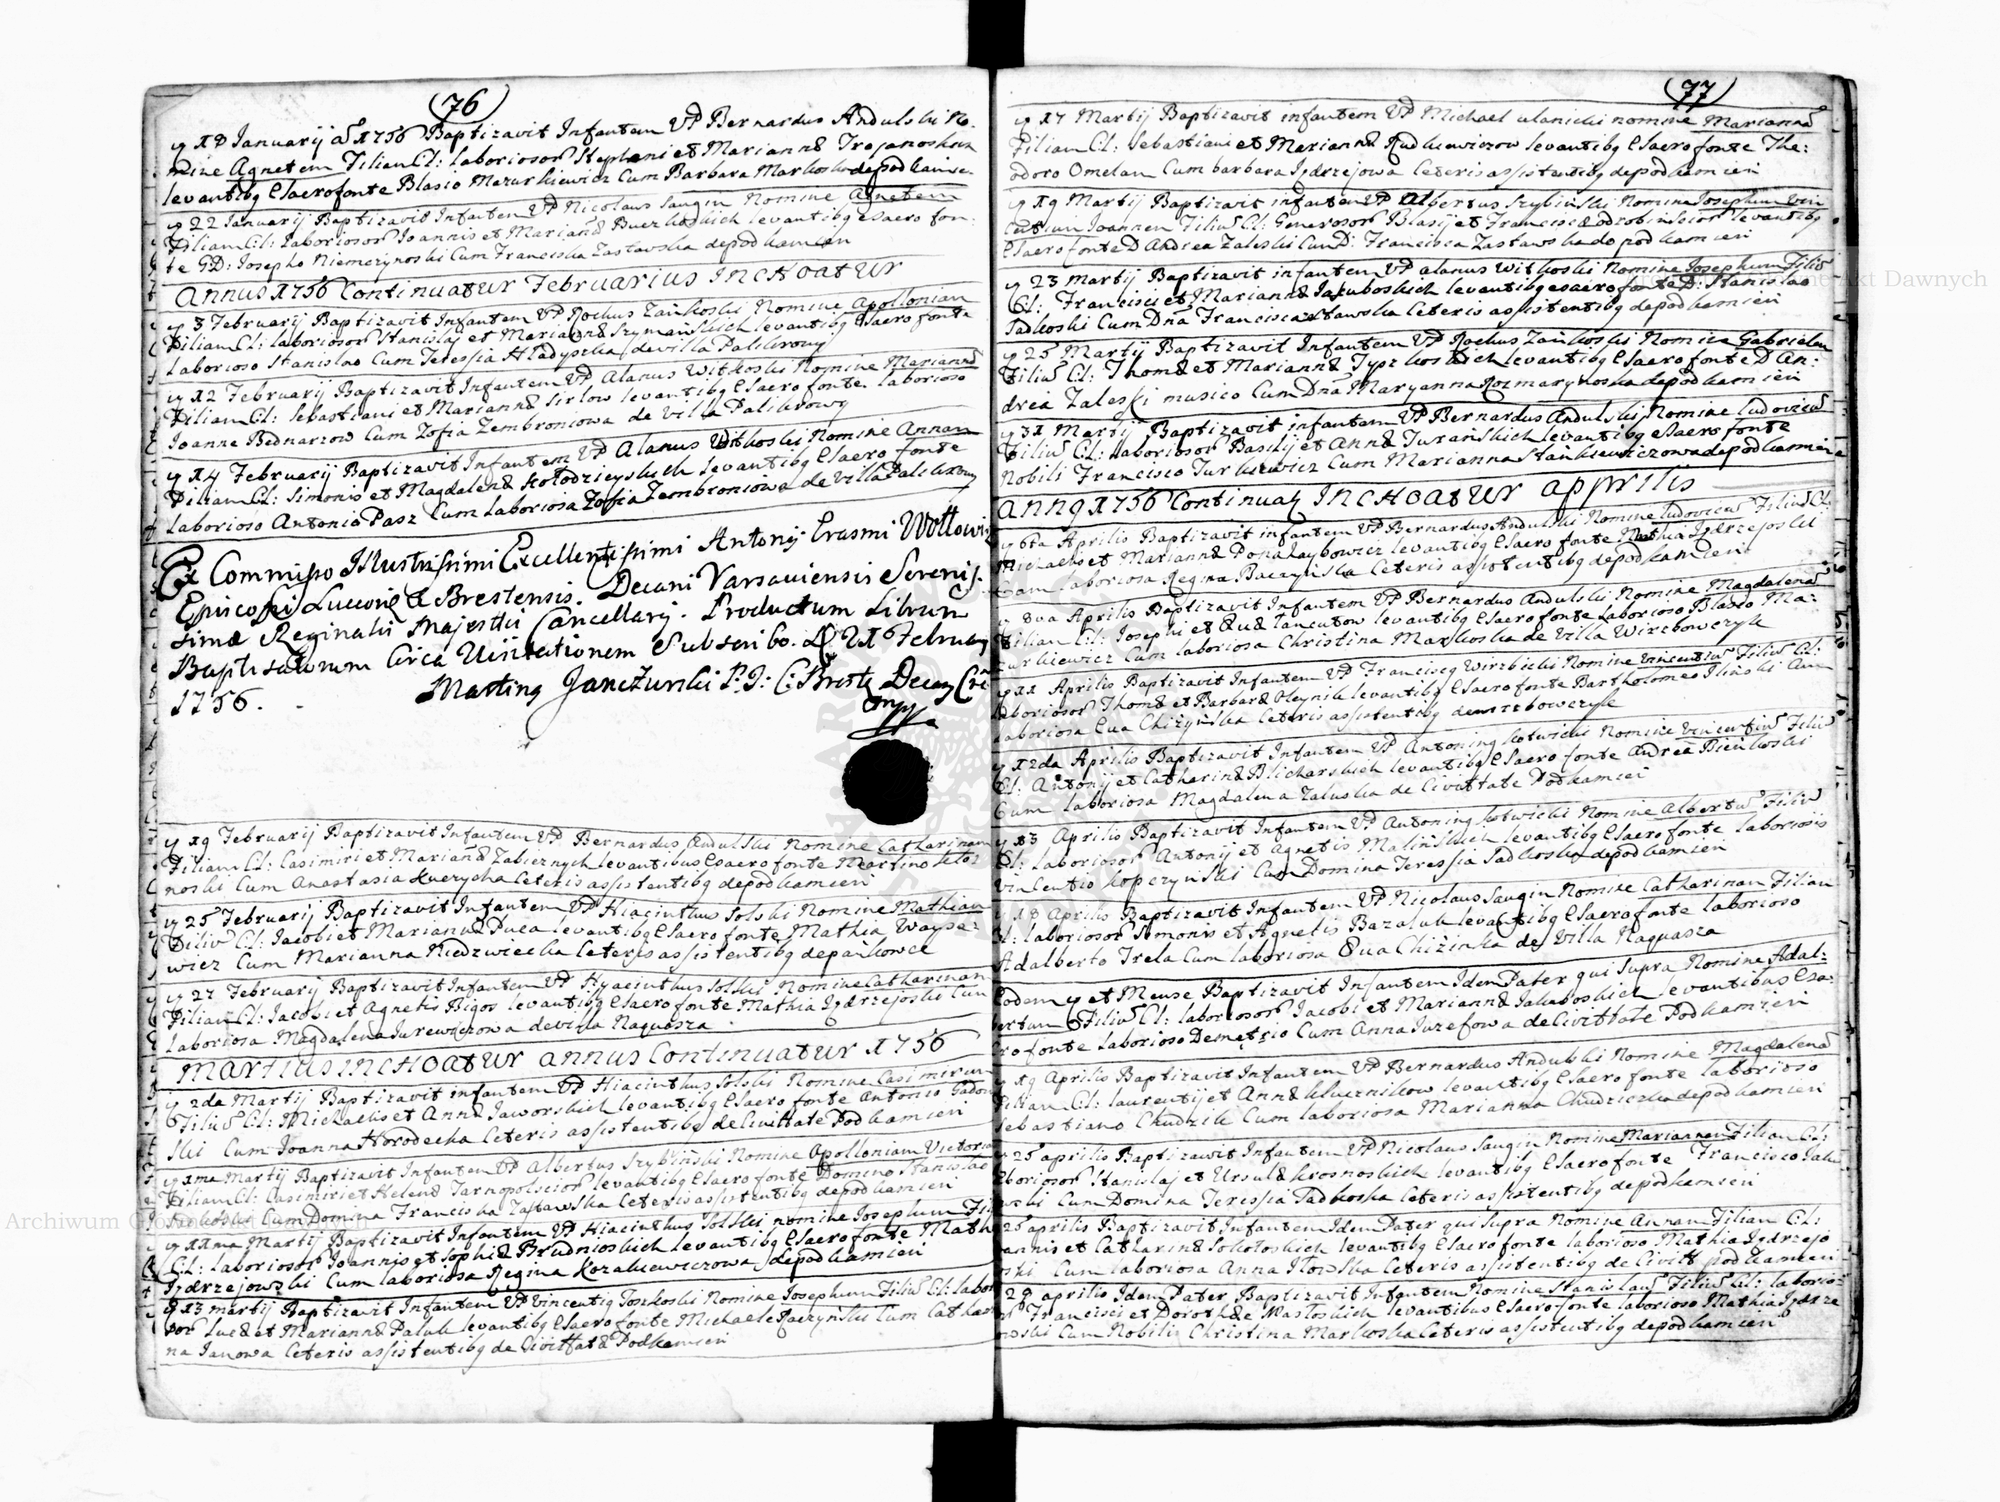 (76)
y 18 Januarij aō 1756 Baptizavit Infantem VP Bernardus Andulski No-
mine Agnetem Filiam Cl: laboriosorᵘ Stephani et Mariannæ Trojanoskich
levantibꝫ e Sacro fonte Blasio Mazurkiewicz Cum Barbara Markoska de podkamie.
y 22 Januarij Baptizavit Infantem VP Nicolaus Saugin Nomine Agnetem
Filiam Cl: laboriosorᵘ Joannis et Mariañæ levantibꝫ e Sacro fon:
te GD: Josepho Niemczynoski Cum Franciska Zastawska de podkamien
Annus 1756 Continuatur Februarius Inchoatur
y 3 Februarij Baptizavit Infantem VP Rochus Zainkoski Nomine Apollonian
Filiam Cl: laboriosorᵘ Stanislaj et Mariannæ Szymanskich levantibꝫ e Sacro fonte
laborioso Stanislao Cum Teressia Hladyszka de villa Palikrowy
y 12 Februarij Baptizavit Infantem VP Alanus Witkoski Nomine Mariannā
Filiam Cl: Sebastiani et Mariannæ Sirlow levantibꝫ e Sacro fonte laborioso
Joanne Bednarzow Cum Zofia Zembroniowa de Villa Palikrowy
y 14 Februarij Baptizavit Infantem VP Alanus Witkoski Nomine Annam
Filiam Cl: Simonis et Magdalenæ Kołodzieyskich levantibꝫ e Sacro fonte
laborioso Antonio Pasz Cum laboriosa Zofia Zembroniowa de Villa Palikrowy
Ex Commisso Illustrissimi Excellentissimi Antonij Erasmi Wołłowicz
Episcopi Luceoriē & Brestensis. Decani Varsaviensis Serenis-
simæ Reginalis Majestis Cancellarij. Productum Librum
Baptisatorum Circa Visitationem Subscribo. D 21 February
1756. Martinꝫ Janczurski P.J: C: Brestz Decanꝫ
y 19 Februarij Baptizavit Infantem VP Bernardus Andulski Nomine Catharinam
Filiam Cl: Casimiri et Mariañæ Zabicznych levantibus e Sacro fonte Martino
noski Cum Anastasia Kucrycha Ceteris assistentibꝫ de podkamieni
y 25 Februarij Baptizavit Infantem VP Hiacinthus Solski Nomine Mathian
Filiū Cl: Jacobi et Mariannæ Duca levantibꝫ e Sacro fonte Mathia Wayse-
wicz Cum Marianna Niedzwiecka Ceteris assistentibꝫ de
y 27 Februarij Baptizavit Infantem VP Hyacinthus Solski Nomine Catharinam
Filiam Cl: Jacobi et Agnetis Bigos levantibꝫ e Sacro fonte Mathia Jędrzejoski Cum
laboriosa Magdalena Jurewiczowa de villa Naguasza.
Martius Inchoatur Annus Continuatur 1756
y 2da Martij Baptizavit infantem VP Hiacinthus Solski Nomine Casimirum
Filiū Cl: Michaelis et Annæ Jaworskich levantibꝫ e Sacro fonte Antonio
ski Cum Joanna Horodecka Ceteris assistentibꝫ de Civittate Podkamieni
y Martij Baptizavit Infantem VP Albertus Szybinski Nomine Apolloniam Victoria
Filiam Cl: Casimiri et Helenæ Tarnopolsciorᵘ levantibꝫ e Sacro fonte Domino Stanislao
Sadkoski Cum Domina Franciska Zastawska Ceteris assistentibꝫ de podkamieni
y 11ma Martij Baptizavit Infantem VP Hiacinthus Solski nomine Josephum Fil
Cl: laboriosorᵘ Joannis et Sophiæ Brudnioskich levantibꝫ e Sacro fonte Math
Jędrzejowski Cum laboriosa Regina Kozakiewiczowa de podkamieni
y 13 martij Baptizavit Infantem VP Vincentiꝫ Toczkoski Nomine Josephum Filiū Cl: labor
sorᵘ Lucæ et Mariannæ Paluk levantibꝫ e Sacro fonte Michaele Raczynski Cum Cathari
na Janowa Ceteris assistentibꝫ de Civittatæ Podkamieni
(77)
y 17 Martij Baptizavit infantem VP Michael ulanicki nomine Mariannā
Filiam Cl: Sebastiani et Mariannæ Rudkiewiczow levantibꝫ e Sacro fonte The:
odoro Omelan Cum barbara Jędrzejowa Ceteris assistentibꝫ de podkamieni
y 19 Martij Baptizavit infantem VP Albertus Szybinski Nomine Josephum Vin
centium Joannem Filiū Cl: Generosorᵘ Blasij et Franciscæ levantibꝫ
e Sacro fonte D Andrea Zaleski Cum D: Francisca Zastawska de podkamieni
y 23 Martij Baptizavit infantem VP Alanus Witkoski Nomine Josephum Filiū
Cl: Francisci et Mariannæ Jakuboskich levantibꝫ e sacro fonte D: Stanislao
Sadkoski Cum Dña Francisca Ceteris assistentibꝫ de podkamieni
y 25 Martij Baptizavit Infantem VP Rochus Zainkoski Nomine Gabrielem
Filiū Cl: Thomæ et Mariannæ levantibꝫ e Sacro fonte D An:
drea Zaleski musico Cum Dña Maryanna Rozmarynoska de podkamieni
y 31 Martij Baptizavit infantem VP Bernardus Andulski Nomine ludovicū
Filiū Cl: laboriosorᵘ Basilij et Annæ Turanskich levantibꝫ e Sacro fonte
Nobili Francisco Turkiewicz Cum Marianna Stankiewiczowa de podkamieni
Annꝫ 1756 Continuatꝫ Inchoatur Apprilis
y 6ta Aprilis Baptizavit infantem VP Bernardus Andulski Nomine ludovicū Filiū Cl:
Michaelis et Mariannæ levantibꝫ e Sacro fonte Mathia Jędrzejoski
Cum laboriosa Regina Baczynska Ceteris assistentibꝫ de podkamieni
y 8va Aprilis Baptizavit Infantem VP Bernardus Andulski Nomine Magdalenā
Filiam Cl: Josephi et Evæ levantibꝫ e Sacro fonte laborioso Blasio Ma:
zurkiewicz Cum laboriosa Christina Markoska de Villa Wirzbowczyk
y 11 Aprilis Baptizavit Infantem VP Franciscꝫ Wirzbicki Nomine Vincentiū Filiū Cl:
laboriosorᵘ Thomæ et Barbaræ Oleynik levantibꝫ e Sacro fonte Bartholomeo Ilinski Cum
laboriosa Eva Chizynska Ceteris assistentibꝫ de wirzbowczyk
y 12da Aprilis Baptizavit Infantem VP Antoninꝫ Kotwicki Nomine Vincentiū Filiū
Cl: Antonij et Catharinæ Blicharskich levantibꝫ e Sacro fonte Andrea Bienkoski
Cum laboriosa Magdalena Zaluska de Civittate Podkamieni
y 13 Aprilis Baptizavit Infantem VP Antoninꝫ Kotwicki Nomine Albertū Filiū
Cl: laboriosorᵘ Antonij et Agnetis Malinskich levantibꝫ e Sacro fonte laboriosis
Vincentio Kopczynski Cum Domina Teressia Sadkoska de podkamieni
y 18 Aprilis Baptizavit Infantem VP Nicolaus Saugin Nomine Catharinam Filiam
Cl: laboriosorᵘ Simonis et Agnetis Bazaluk levantibꝫ e Sacro fonte laborioso
Adalberto Trela Cum laboriosa Eva Chizinska de Villa Naguasza
Eodem y et Mense Baptizavit Infantem Idem Pater qui Supra Nomine Adal:
bertum Filiū Cl: laboriosorᵘ Jacobi et Mariannæ Jakuboskich levantibus e Sa:
cro fonte laborioso Demetrio Cum Anna Juzefowa de Civittate Podkamieni
y 19 Aprilis Baptizavit Infantem VP Bernardus Andulski Nomine Magdalenā
Filiam Cl: laurentij et Annæ levantibꝫ e Sacro fonte laborioso
Sebastiano Chudzik Cum laboriosa Marianna Chudziczka de podkamieni
y 25 aprilis Baptizavit Infantem VP Nicolaus Saugin Nomine Mariannem Filiam Cl:
laboriosorᵘ Stanislaj et Ursulæ Krosnoskich levantibꝫ e Sacro fonte Francisco
Cum Domina Teressia Sadkoska Ceteris assistentibꝫ de podkamieni
26 aprilis Baptizavit Infantem Idem Pater qui Supra Nomine Annam Filiam Cl:
Joannis et Catharinæ Sokołoskich levantibꝫ e Sacro fonte laborioso Mathia Jędrzejo
wski Cum laboriosa Anna Ceteris assistentibꝫ de Civitt podkamieni
28 aprilis Idem Pater Baptizavit Infantem Nomine Stanislaū Filiū Cl: laborio
sorᵘ Francisci et Dorothæe Masłoskich levantibus e Sacro fonte laborioso Mathia Jędrze
jowski Cum Nobilis Christina Markoska Ceteris assistentibꝫ de podkamieni